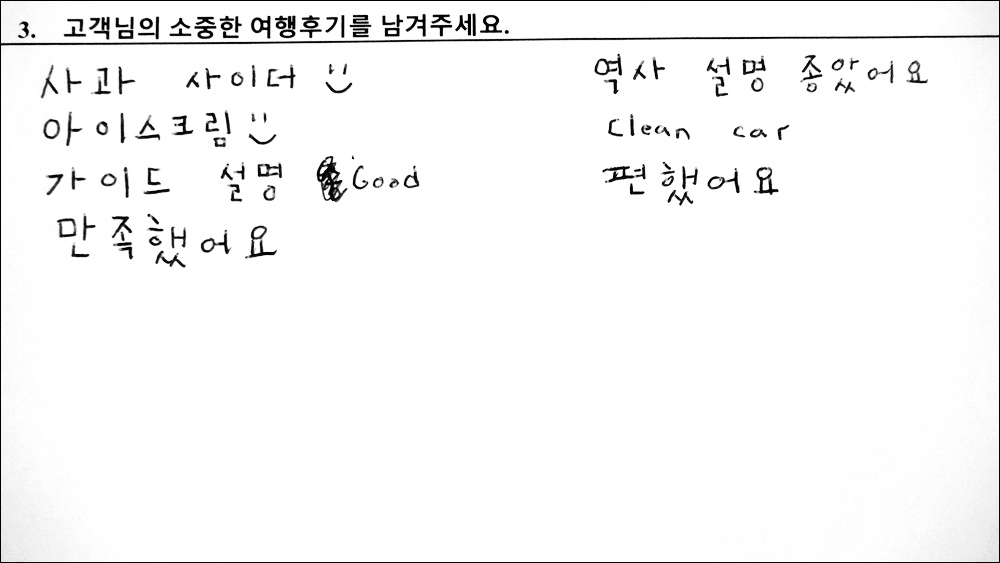 3. 고객님의 소중한 여행후기를 남겨주세요.
사과 사이더
아이스크림
가이드 설명 Good
만족했어요
역사 설명 좋았어요
clean car
편했어요